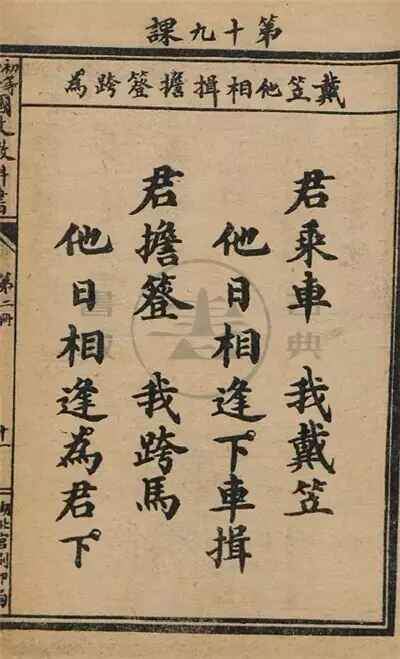 第十九課
戴笠他相揖擔簦跨為
君乘車 我戴笠
他日相逢下車揖
君擔簦 我跨馬
他日相逢為君下
初等國文教科書
第二冊